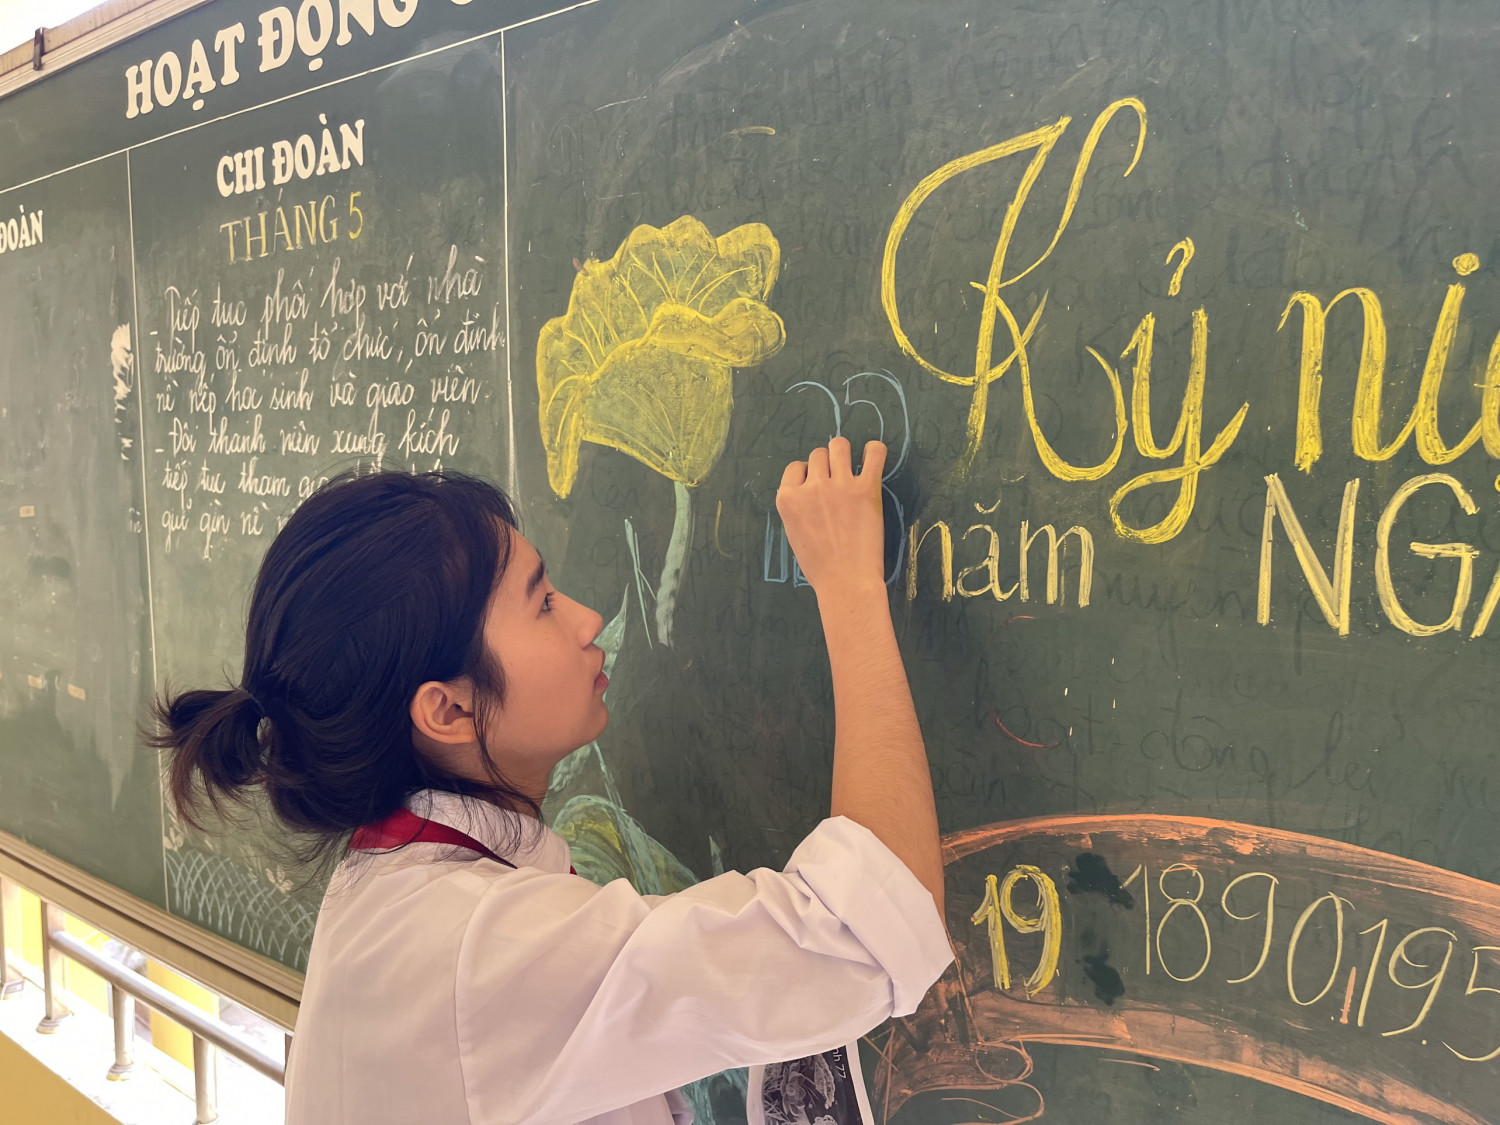 HOẠT ĐỘNG
ĐOÀN
CHI ĐOÀN
THÁNG 5
- Tiếp tục phối hợp với nhà
trường ổn định tổ chức, ổn định
nề nếp học sinh và giáo viên.
- Đôi thanh niên xung kích
tiếp tục tham gia
giữ gìn nề
Kỷ niệ
năm
NGÀ
19 1890.19.5
nh 77